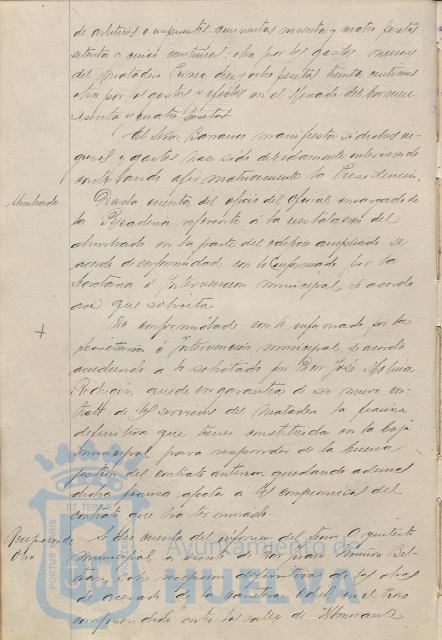 de arbitrios o impuestos cincuenta noventa y cuatro pesetas
setenta y cinco céntimos, otra por los gastos menores
del Matadero Enero diez y ocho pesetas treinta céntimos
otra por gastos y efectos en el Mercado del Carmen
sesenta y cuatro pesetas.
El Señor Barranco manifiesta si dichos in-
gresos y gastos han sido debidamente intervenidos
contestando afirmativamente la Presidencia.
Alumbrado
Dada cuenta del oficio del Oficial encargado de
la Pescadería referente á la instalación del
alumbrado en la parte del edificio ampliado se
acordó de conformidad con lo informado por la
Secretaría é Intervención municipal, se acordó
que solicita.
De conformidad con lo informado por las
Secretaría é Intervención municipal, se acordó
accediendo a lo solicitado por Don José Molina
Rodríguez, quede en garantía de su nuevo con-
trato de los servicios del Matadero la fianza
definitiva que tiene constituida en la Caja
municipal para responder de la buena
gestión del contrato anterior, quedando además
dicha fianza afecta a los compromisos del
contrato que ha terminado.
Recepción de
Obra
Se dió cuenta del informe del Señor Arquitecto
municipal
recepción definitiva de las obras
de acerado de la carretera Odiel en el trozo
comprendido entre las calles de Almirante
PORTUS MARIS
ET TERRAE
Ayuntamiento de
HUELVA